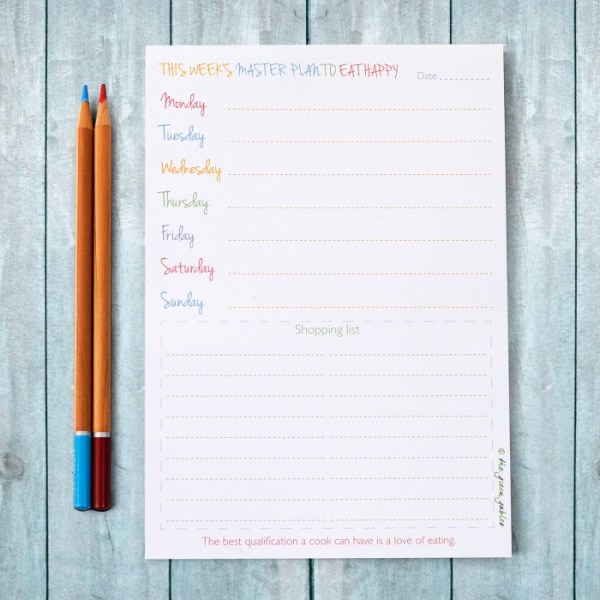 THIS WEEK'S MASTER PLAN TO EAT HAPPY
Date
Monday
Tuesday
Wednesday
Thursday
Friday
Saturday
Sunday
Shopping list
© the green gables
The best qualification a cook can have is a love of eating.